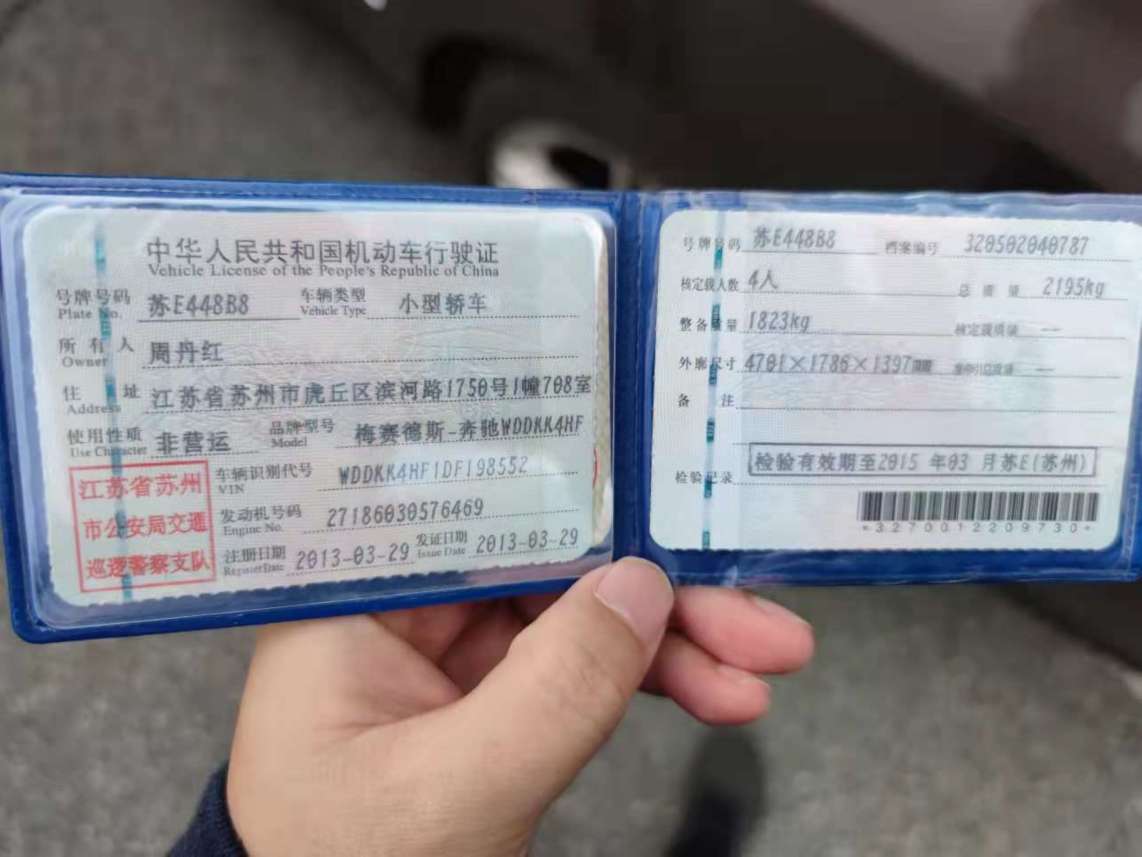 中华人民共和国机动车行驶证
Vehicle License of the People's Republic of China
号牌号码 苏E448B8 车辆类型 小型轿车
Plate No. Vehicle Type
所有人 周丹红
Owner
住址 江苏省苏州市虎丘区滨河路1750号1幢708室
Address
使用性质 非营运 品牌型号 梅赛德斯-奔驰WDDKK4HF
Use Character Model
江苏省苏州
市公安局交通
巡逻警察支队
车辆识别代号 WDDKK4HF1DF198552
VIN
发动机号码 27186030576469
Engine No.
注册日期 2013-03-29 发证日期 2013-03-29
Register Date Issue Date
号牌号码 苏E448B8 档案编号 320502040787
核定载人数 4人 总质量 2195kg
整备质量 1823kg 核定载质量 —
外廓尺寸 4701×1786×1397mm 准牵引总质量 —
备注
检验记录 检验有效期至2015年03月苏E(苏州)
*3270012209730*